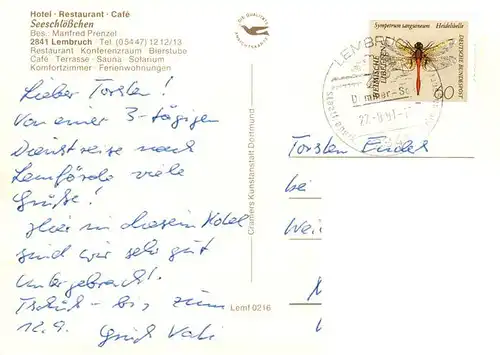 Hotel · Restaurant · Café
Seeschlößchen
Bes.: Manfred Prenzel
2841 Lembruch Tel. (05447) 1212/13
Restaurant Konferenzraum Bierstube
Café · Terrasse · Sauna · Solarium
Komfortzimmer · Ferienwohnungen
Lieber Torsten!
Von einer 3-tägigen
Dienstreise nach
Lemförde viele
Grüße!
Hier in diesem Hotel
sind wir sehr gut
untergebracht.
Tschüß - bis zum
12.9.
Cramers Kunstanstalt Dortmund
Lemf 0216
Sympetrum sanguineum Heidelibelle
HEIMISCHE LIBELLEN
DEUTSCHE BUNDESPOST
60
LEMBRUCH
Torsten
bei